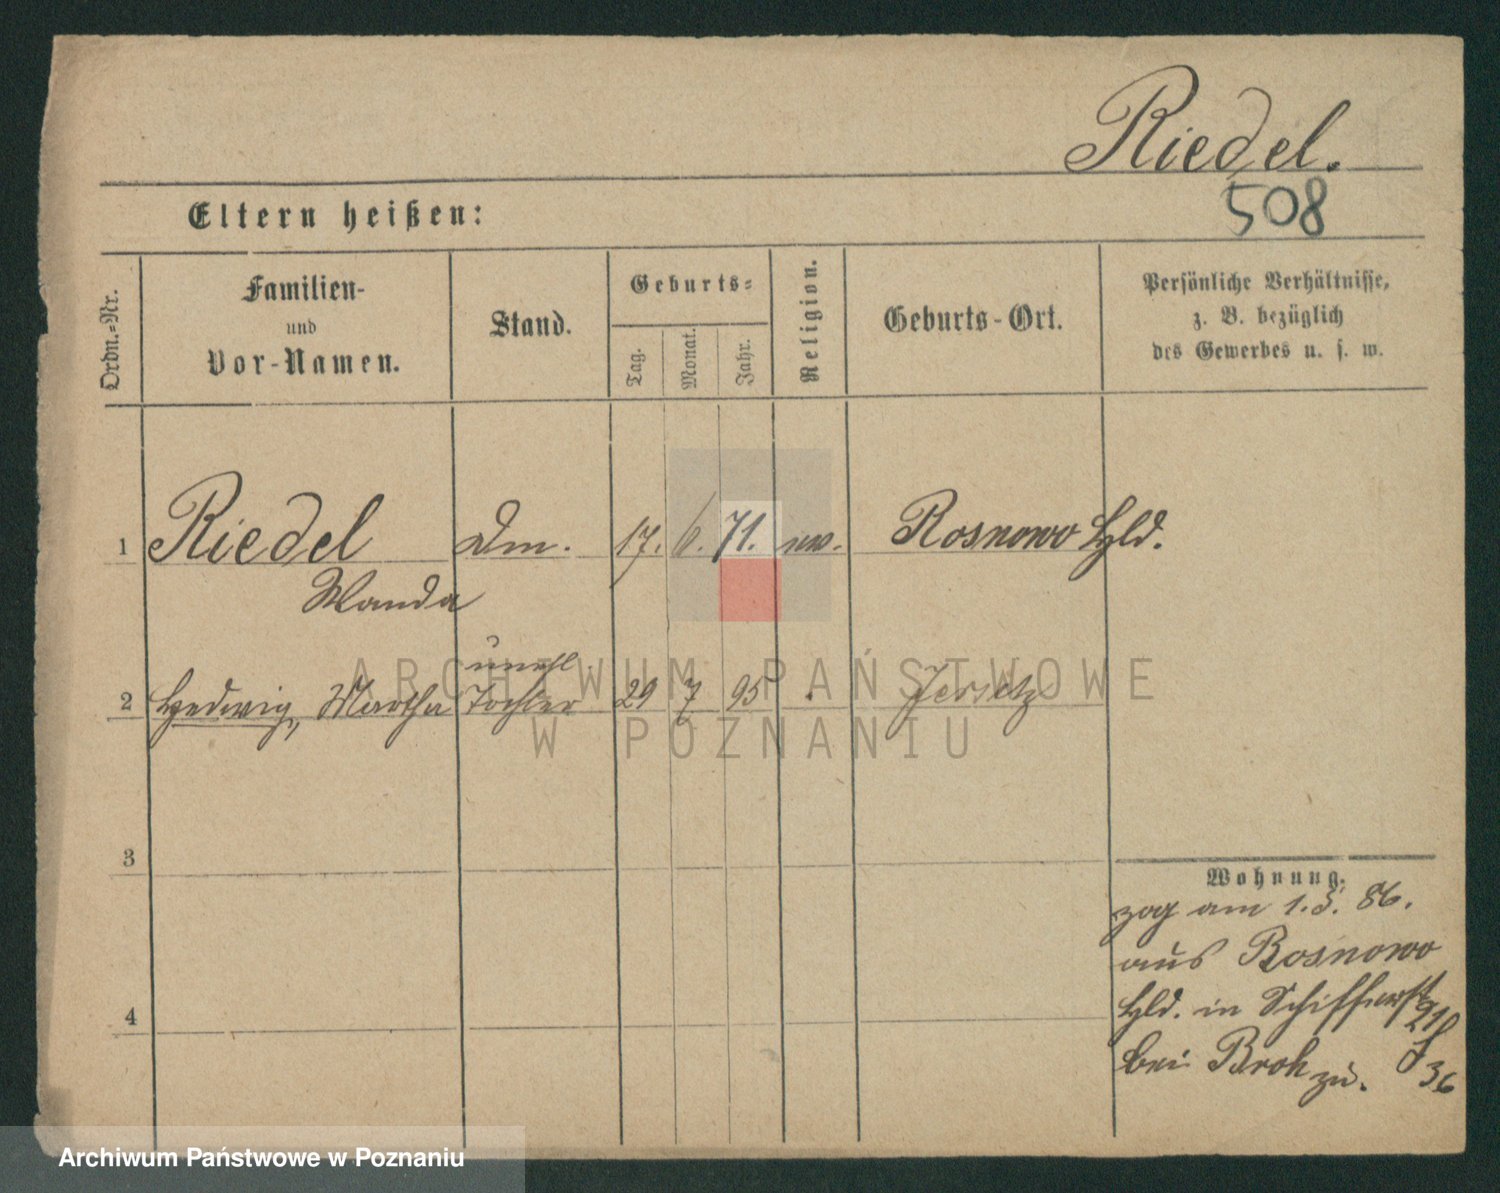 Riedel.
508
Eltern heißen:
Ordn.=Nr.
Familien-
und
Vor-Namen.
Stand.
Geburts=
Tag.
Monat.
Jahr.
Religion.
Geburts-Ort.
Persönliche Verhältnisse,
z. B. bezüglich
des Gewerbes u. s. w.
1 Riedel 17. 6. 71. ev. Rosnowo Hld.
Wanda
unehl.
2 Hedwig, Martha Tochter 29 7 95 Jersitz
3
4
Wohnung.
zog am 1. 5. 86.
aus Rosnowo
Hld. in Schifferstr
bei Broh zu.
36
ARCHIWUM PAŃSTWOWE
W POZNANIU
Archiwum Państwowe w Poznaniu